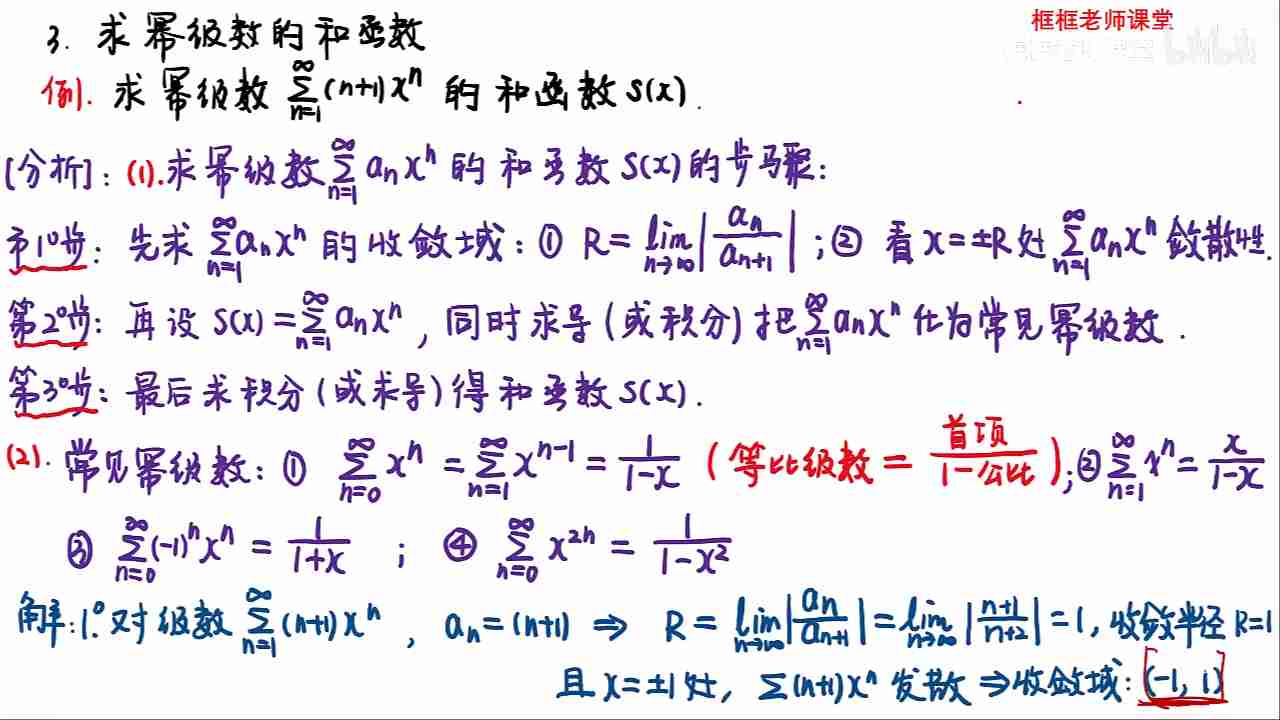 框框老师课堂
bilibili
3. 求幂级数的和函数
例. 求幂级数 ∑_{n=1}^{∞}(n+1)x^n 的和函数 S(x).
[分析]: (1).求幂级数 ∑_{n=1}^{∞} a_n x^n 的和函数 S(x) 的步骤:
第1°步: 先求 ∑_{n=1}^{∞} a_n x^n 的收敛域: ① R = lim_{n→∞} |a_n/a_{n+1}| ; ② 看 x=±R 处 ∑_{n=1}^{∞} a_n x^n 敛散性.
第2°步: 再设 S(x) = ∑_{n=1}^{∞} a_n x^n , 同时求导(或积分)把 ∑_{n=1}^{∞} a_n x^n 化为常见幂级数.
第3°步: 最后求积分(或求导)得和函数 S(x).
(2). 常见幂级数: ① ∑_{n=0}^{∞} x^n = ∑_{n=1}^{∞} x^{n-1} = 1/(1-x) (等比级数 = 首项/(1-公比)); ② ∑_{n=1}^{∞} x^n = x/(1-x)
③ ∑_{n=0}^{∞} (-1)^n x^n = 1/(1+x) ; ④ ∑_{n=0}^{∞} x^{2n} = 1/(1-x^2)
解: 1°. 对级数 ∑_{n=1}^{∞} (n+1)x^n , a_n = (n+1) ⇒ R = lim_{n→∞} |a_n/a_{n+1}| = lim_{n→∞} |(n+1)/(n+2)| = 1, 收敛半径 R=1
且 x=±1 处, ∑(n+1)x^n 发散 ⇒ 收敛域: (-1, 1)